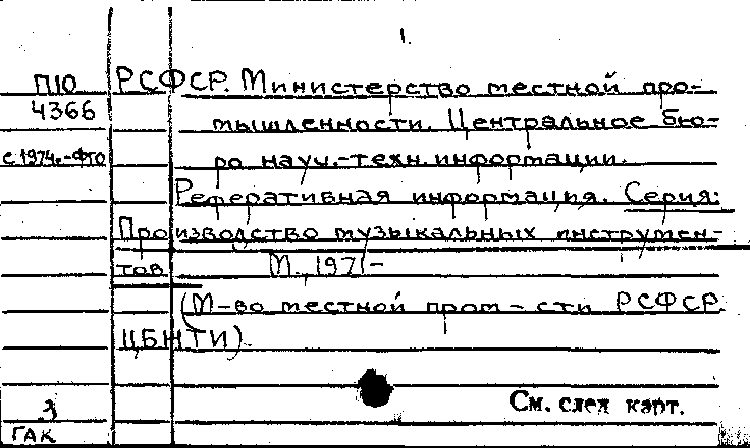 1.
П10 РСФСР. Министерство местной про-
4366 мышленности. Центральное бю-
с 1974г.-Фто ро науч.-техн. информации.
Реферативная информация. Серия:
Производство музыкальных инструмен-
тов. М., 1971-
(М-во местной пром-сти РСФСР.
ЦБНТИ).
См. след карт.
ГАК